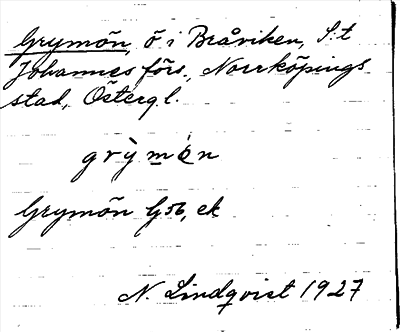 Grymön, ö i Bråviken, S:t
Johannes förs., Norrköpings
stad, Östergl.
grỳmön
Grymön G56, ek
N. Lindqvist 1927